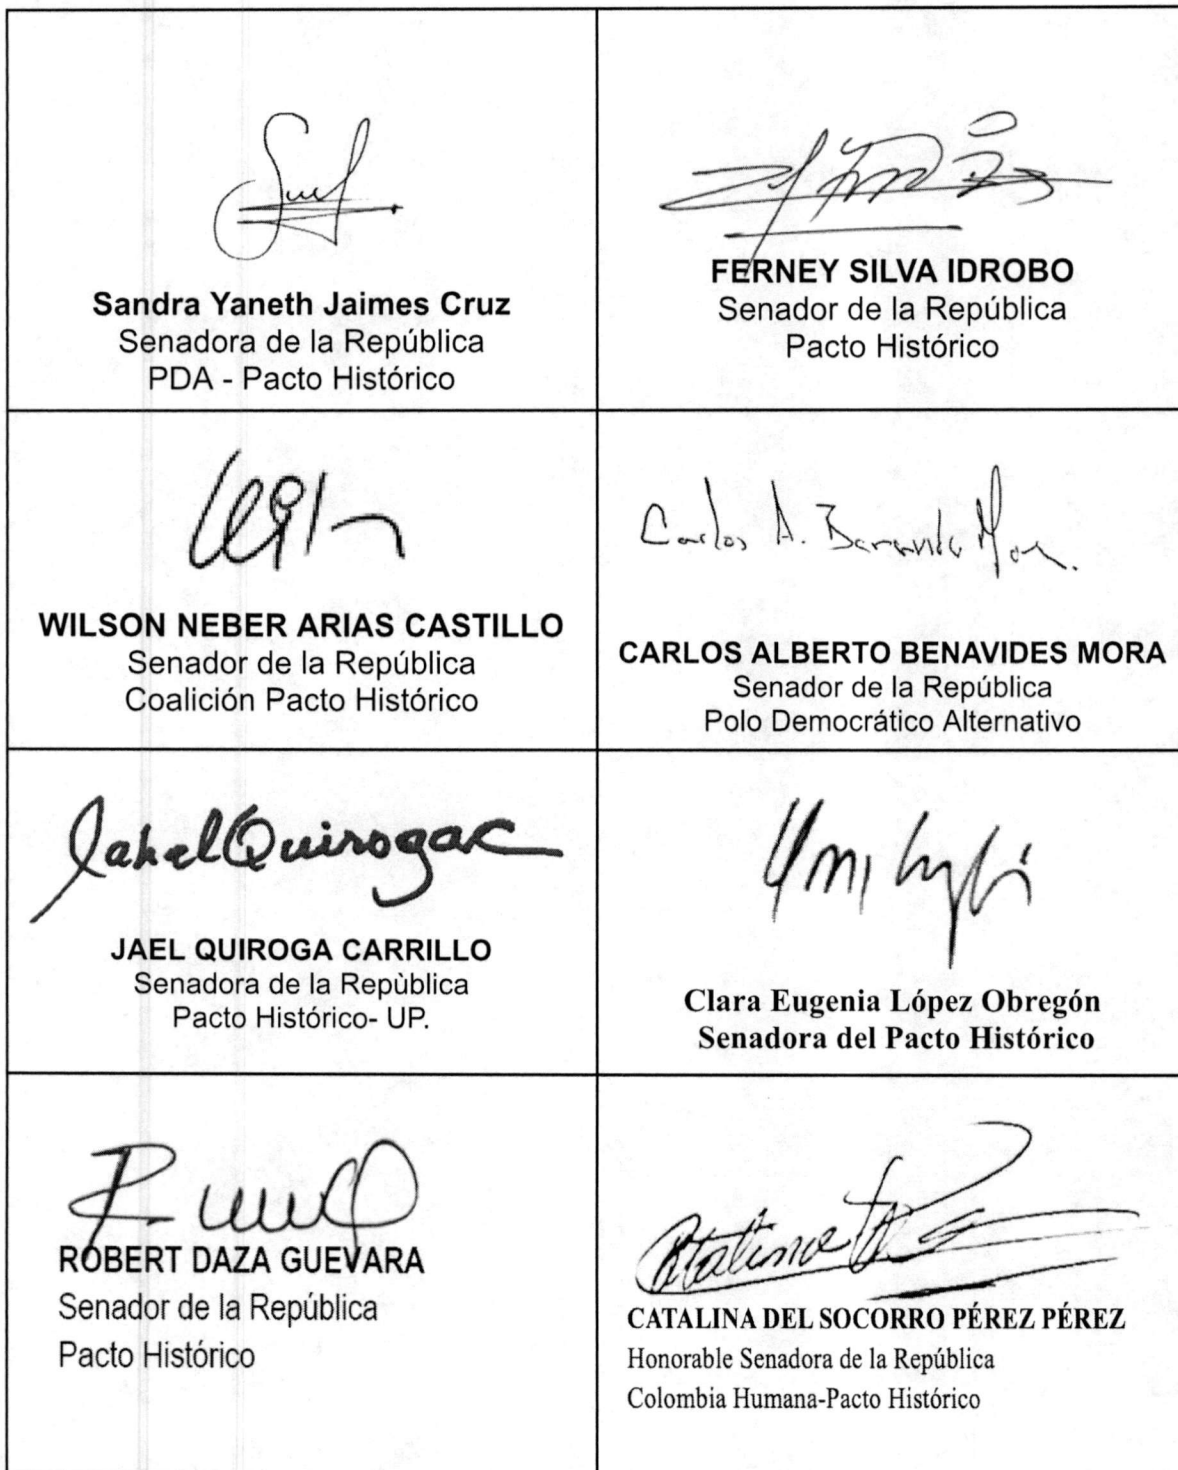 Sandra Yaneth Jaimes Cruz
Senadora de la República
PDA - Pacto Histórico
FERNEY SILVA IDROBO
Senador de la República
Pacto Histórico
WILSON NEBER ARIAS CASTILLO
Senador de la República
Coalición Pacto Histórico
Carlos A. Benavides Mora.
CARLOS ALBERTO BENAVIDES MORA
Senador de la República
Polo Democrático Alternativo
Jahel Quiroga C
JAEL QUIROGA CARRILLO
Senadora de la Repùblica
Pacto Histórico- UP.
Clara Eugenia López Obregón
Senadora del Pacto Histórico
ROBERT DAZA GUEVARA
Senador de la República
Pacto Histórico
Catalina
CATALINA DEL SOCORRO PÉREZ PÉREZ
Honorable Senadora de la República
Colombia Humana-Pacto Histórico